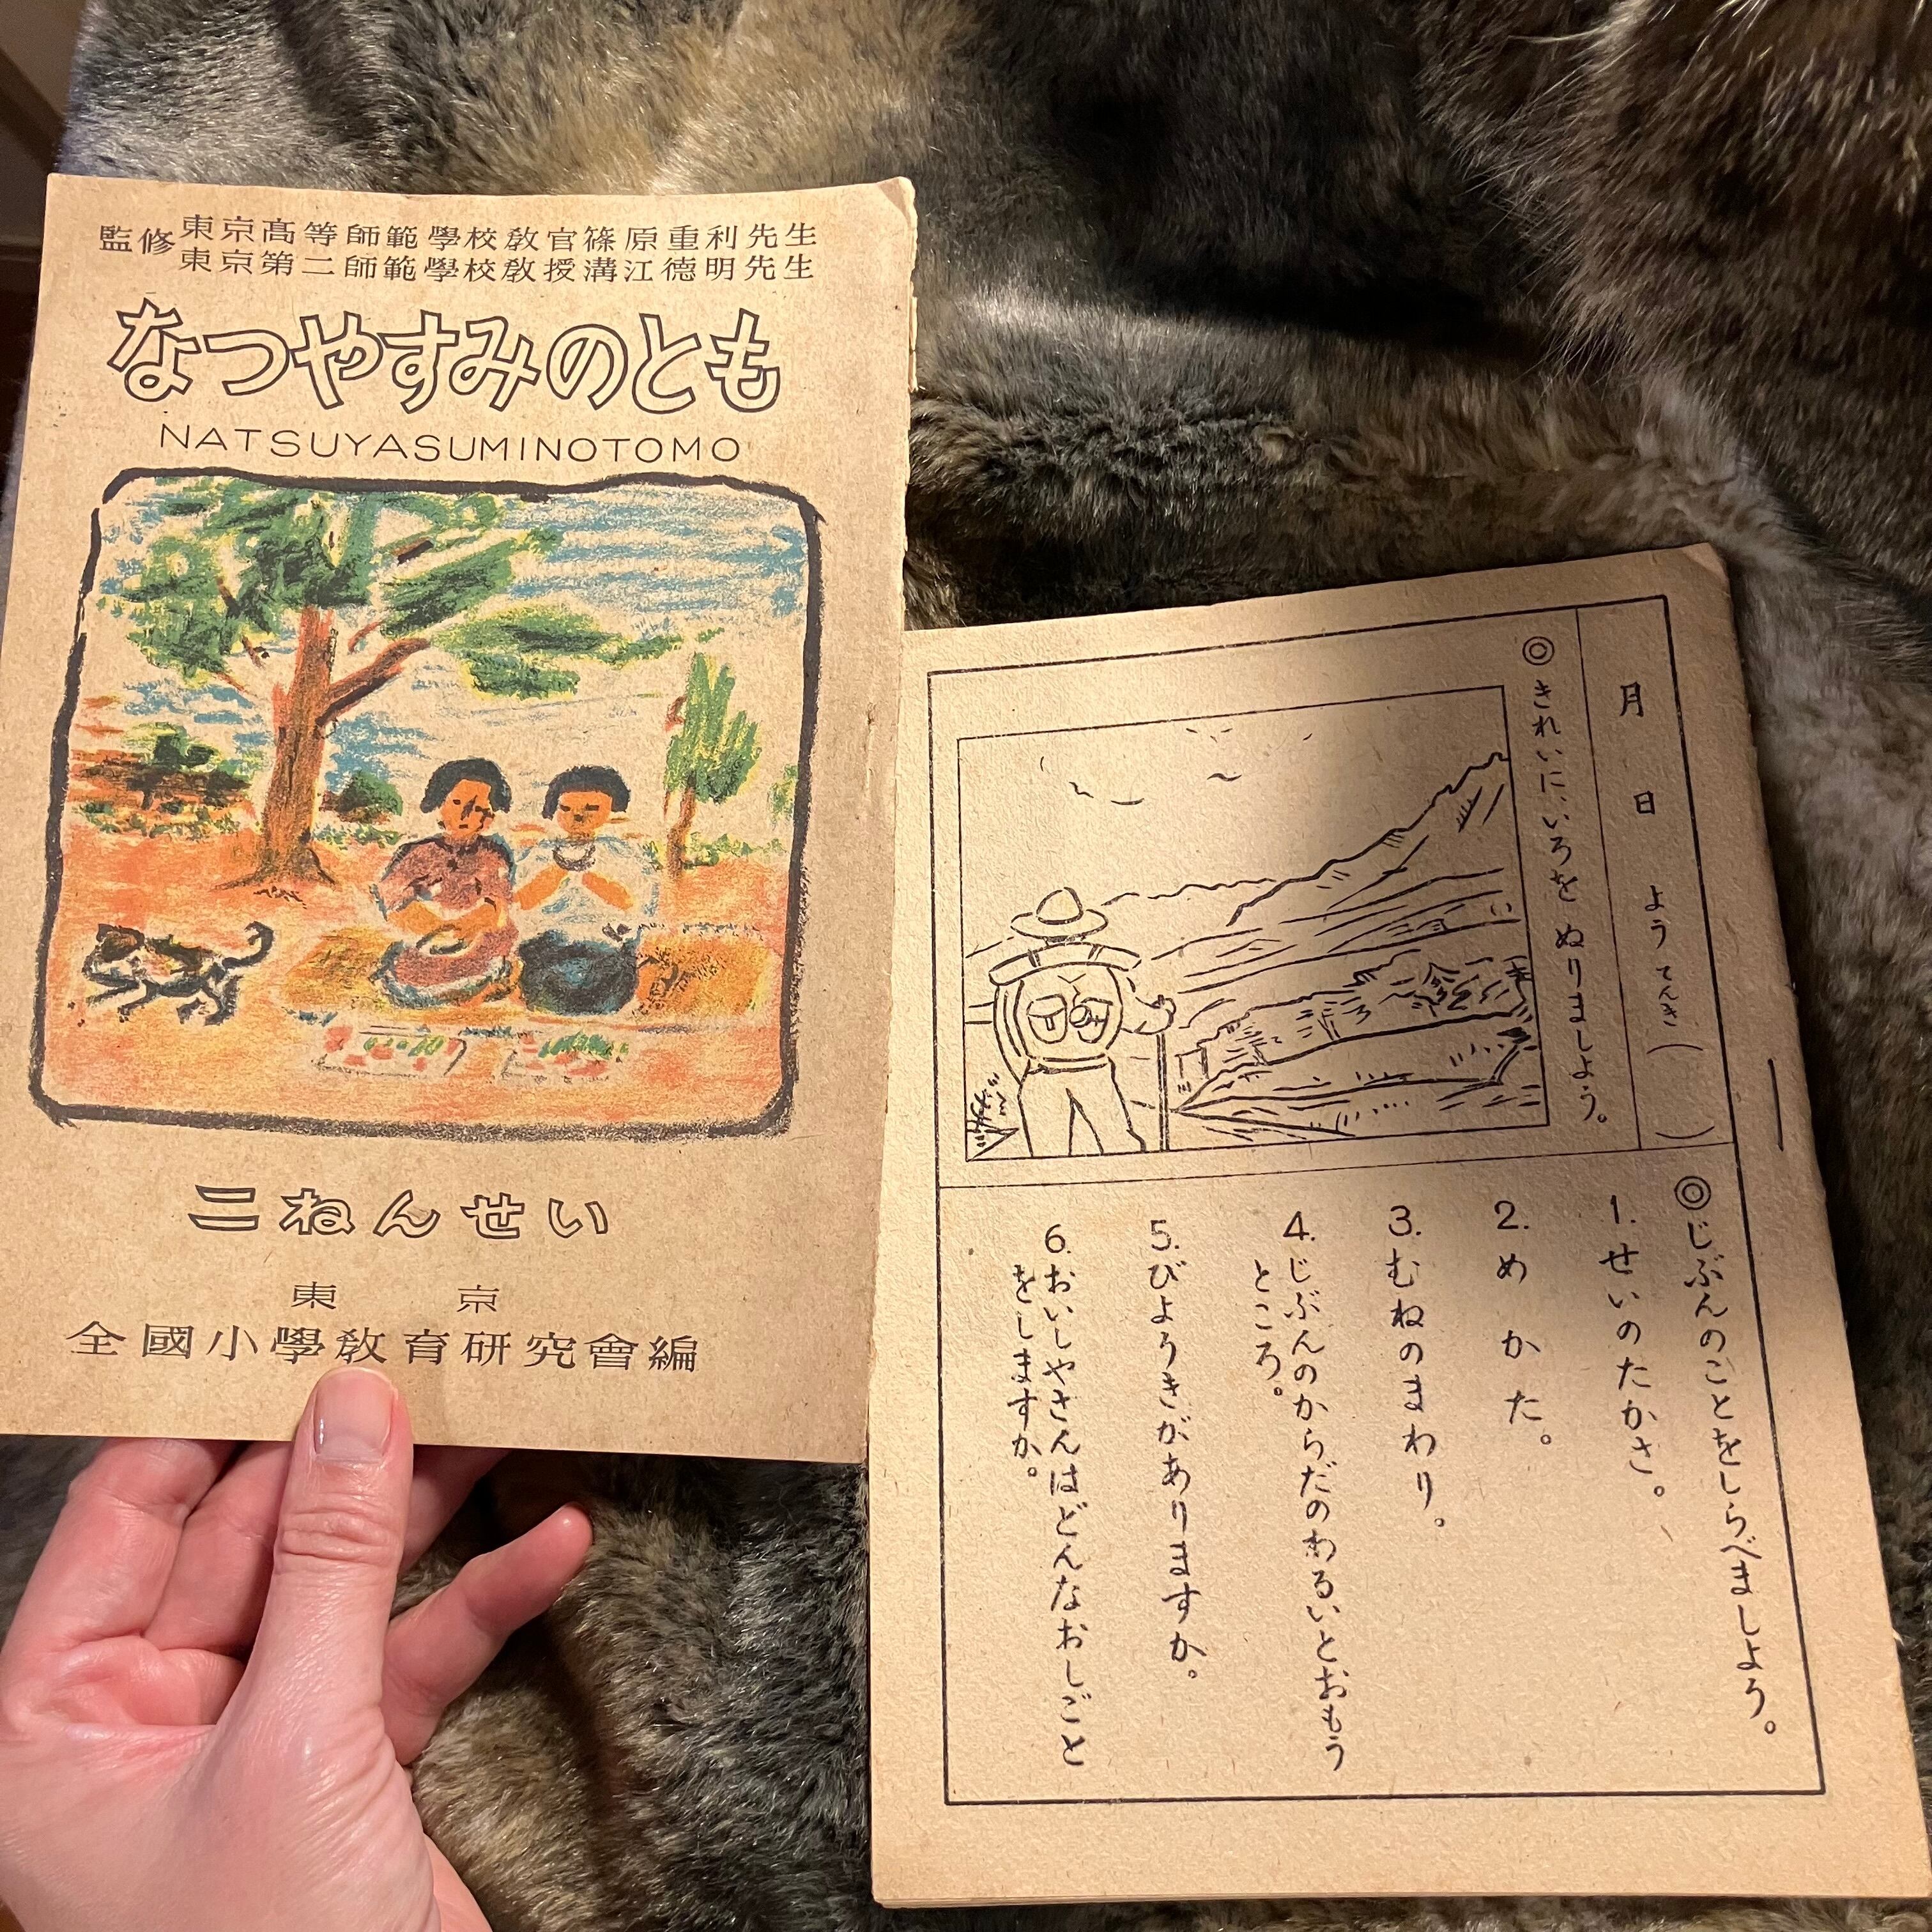 監修
東京高等師範學校敎官篠原重利先生
東京第二師範學校敎授溝江德明先生
なつやすみのとも
NATSUYASUMINOTOMO
二ねんせい
東京
全國小學敎育硏究會編
月 日 よう てんき( )
◎きれいに、いろを ぬりましよう。
◎じぶんのことをしらべましよう。
1. せいのたかさ。
2. めかた。
3. むねのまわり。
4. じぶんのからだのわるいとおもう
ところ。
5. びようきがありますか。
6. おいしやさんはどんなおしごと
をしますか。